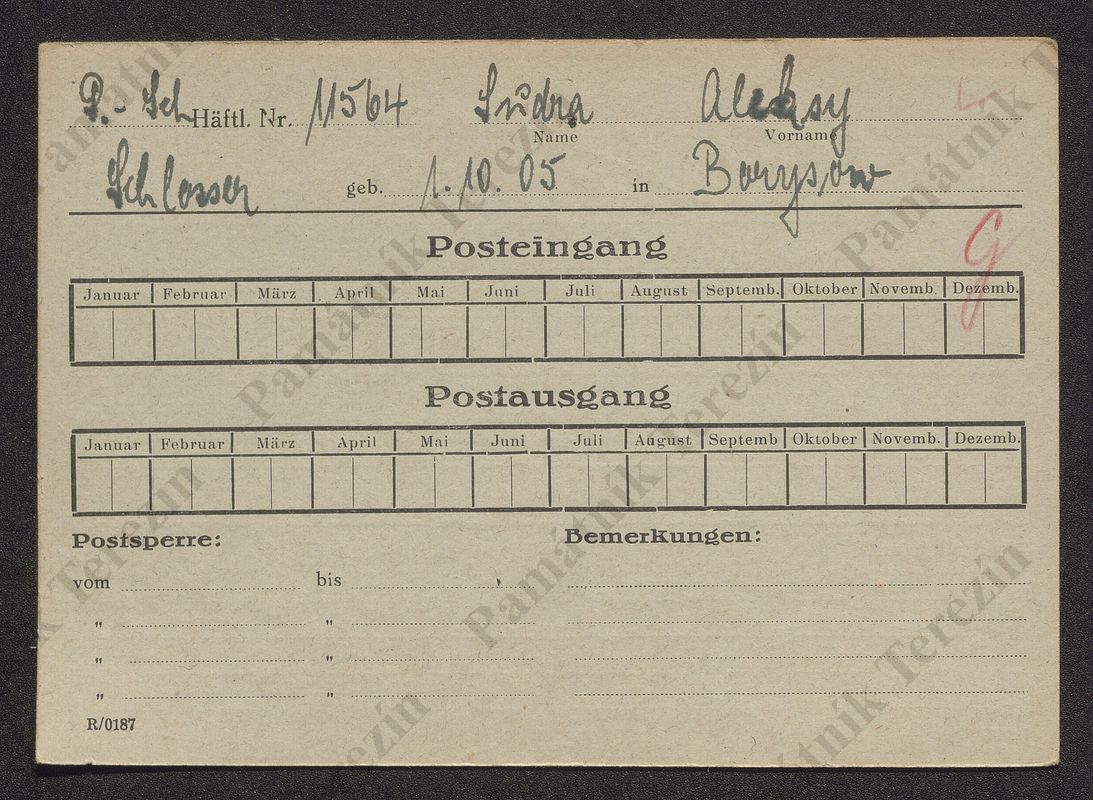 P.- Sch Häftl. Nr. 11564 Sudra Aleksy
Name Vorname
Schlosser geb. 1. 10. 05 in Borysow
Posteingang
Januar Februar März April Mai Juni Juli August Septemb. Oktober Novemb. Dezemb.
Postausgang
Januar Februar März April Mai Juni Juli August Septemb Oktober Novemb. Dezemb.
Postsperre: Bemerkungen:
vom bis
" "
" "
" "
R/0187
Památník Terezín